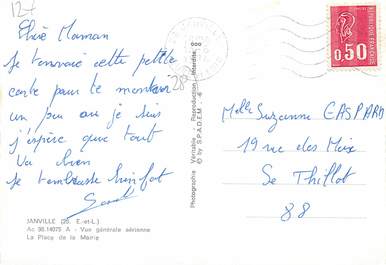 127
Chère Maman
Je t'envoie cette petite
carte pour te montrer
un peu où je suis
j'espère que tout
va bien
Je t'embrasse bien fort
JANVILLE (28. E.-et-L.)
Ac 98.14075 A - Vue générale aérienne
La Place de la Mairie
Photographie Véritable - Reproduction Interdite
© by S.P.A.D.E.M.
JANVILLE
28
REPUBLIQUE FRANÇAISE
0,50
Melle Suzanne GASPARD
19 rue des
Le Thillot
88